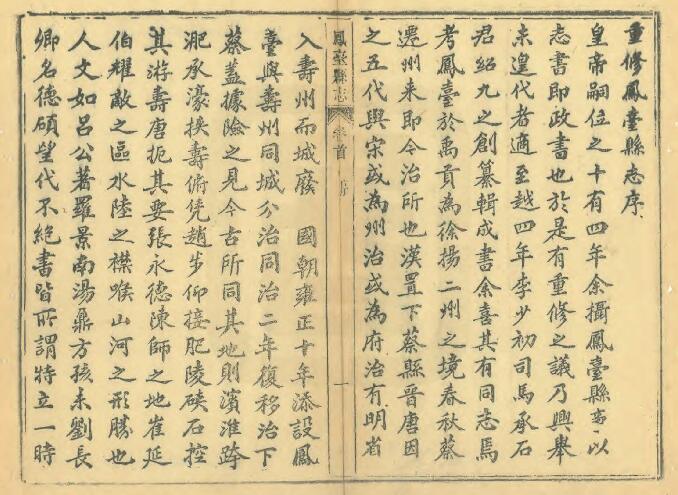 重修鳳臺縣志序
皇帝嗣位之十有四年余攝鳳臺縣事以
志書即政書也於是有重修之議乃興舉
未遑代者適至越四年李少初司馬承石
君紹九之創纂輯成書余喜其有同志焉
考鳳臺於禹貢為徐揚二州之境春秋蔡
遷州来即今治所也漢置下蔡縣晉唐因
之五代與宋或為州治或為府治有明省
鳳臺縣志
卷首
序
一
入壽州而城廢 國朝雍正十年添設鳳
臺與壽州同城分治同治二年復移治下
蔡蓋據險之見今古所同其地則濱淮跨
淝承濠挾壽俯凭趙步仰接肥陵硤石控
其游壽唐扼其要張永德陳師之地崔延
伯耀敵之區水陸之襟喉山河之形勝也
人文如呂公著羅景南湯鼐方孩未劉長
卿名德碩望代不絶書皆所謂特立一時